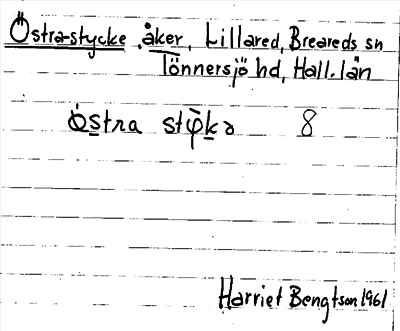 Östra-stycke, åker, Lillared, Breareds sn
Tönnersjö hd, Hall. län
östra stφ̀kə 8
Harriet Bengtson 1961